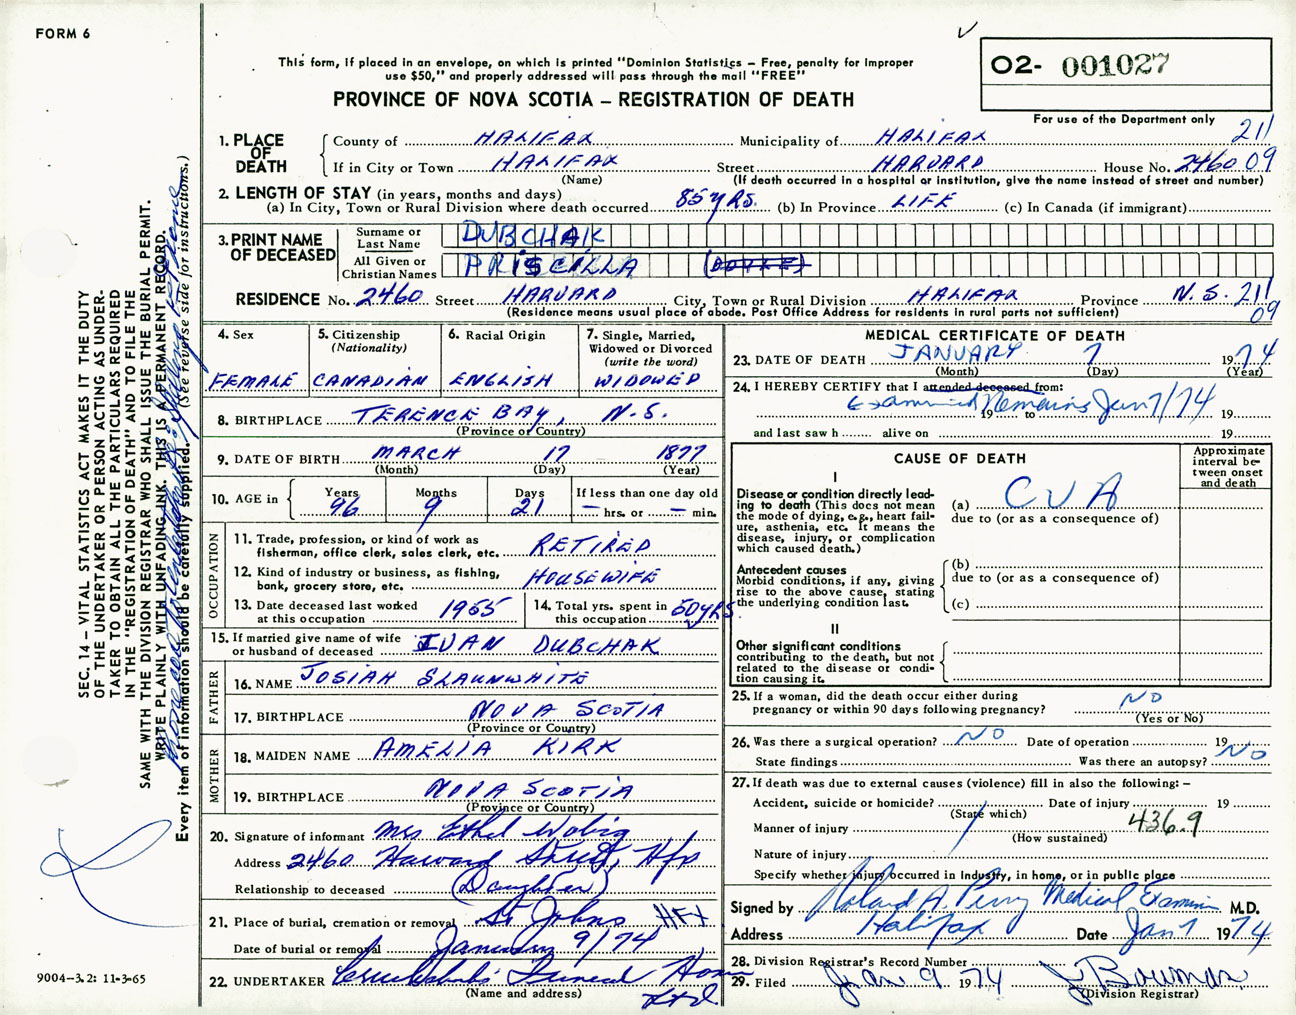 FORM 6
This form, if placed in an envelope, on which is printed "Dominion Statistics – Free, penalty for improper
use $50," and properly addressed will pass through the mail "FREE"
PROVINCE OF NOVA SCOTIA – REGISTRATION OF DEATH
O2- 001027
For use of the Department only
211
09
1. PLACE OF DEATH
County of HALIFAX Municipality of HALIFAX
If in City or Town HALIFAX Street HARVARD House No. 2460
(Name) (If death occurred in a hospital or institution, give the name instead of street and number)
2. LENGTH OF STAY (in years, months and days)
(a) In City, Town or Rural Division where death occurred 85 yrs. (b) In Province LIFE (c) In Canada (if immigrant)
3. PRINT NAME OF DECEASED
Surname or Last Name DUBCHAK
All Given or Christian Names PRISCILLA
RESIDENCE No. 2460 Street HARVARD City, Town or Rural Division HALIFAX Province N.S. 211
09
(Residence means usual place of abode. Post Office Address for residents in rural parts not sufficient)
4. Sex
FEMALE
5. Citizenship
(Nationality)
CANADIAN
6. Racial Origin
ENGLISH
7. Single, Married,
Widowed or Divorced
(write the word)
WIDOWED
8. BIRTHPLACE TERENCE BAY, N.S.
(Province or Country)
9. DATE OF BIRTH MARCH 17 1877
(Month) (Day) (Year)
10. AGE in
Years 96
Months 9
Days 21
If less than one day old
— hrs. or — min.
OCCUPATION
11. Trade, profession, or kind of work as
fisherman, office clerk, sales clerk, etc. RETIRED
12. Kind of industry or business, as fishing,
bank, grocery store, etc. HOUSEWIFE
13. Date deceased last worked
at this occupation 1955
14. Total yrs. spent in
this occupation 50 yrs
15. If married give name of wife
or husband of deceased IVAN DUBCHAK
FATHER
16. NAME JOSIAH SLAUNWHITE
17. BIRTHPLACE NOVA SCOTIA
(Province or Country)
MOTHER
18. MAIDEN NAME AMELIA KIRK
19. BIRTHPLACE NOVA SCOTIA
(Province or Country)
20. Signature of informant Mrs Ethel
Address 2460 Harvard Street, Hfx
Relationship to deceased (Daughter)
21. Place of burial, cremation or removal St Johns HFX
Date of burial or removal January 9/74
22. UNDERTAKER Cruikshank's Funeral Home
(Name and address) Ltd
MEDICAL CERTIFICATE OF DEATH
23. DATE OF DEATH JANUARY 7 1974
(Month) (Day) (Year)
24. I HEREBY CERTIFY that I attended deceased from:
Examined Remains Jan 7/74
19 to 19
and last saw h alive on 19
CAUSE OF DEATH
Approximate
interval be-
tween onset
and death
I
Disease or condition directly lead-
ing to death (This does not mean
the mode of dying, e.g., heart fail-
ure, asthenia, etc. It means the
disease, injury, or complication
which caused death.)
(a) CVA
due to (or as a consequence of)
Antecedent causes
Morbid conditions, if any, giving
rise to the above cause, stating
the underlying condition last.
(b)
due to (or as a consequence of)
(c)
II
Other significant conditions
contributing to the death, but not
related to the disease or condi-
tion causing it.
25. If a woman, did the death occur either during
pregnancy or within 90 days following pregnancy? NO
(Yes or No)
26. Was there a surgical operation? NO Date of operation 19
State findings Was there an autopsy? NO
27. If death was due to external causes (violence) fill in also the following: –
Accident, suicide or homicide? Date of injury 19
(State which)
Manner of injury 436.9
(How sustained)
Nature of injury
Specify whether injury occurred in Industry, in home, or in public place
Signed by Roland A. Perry Medical Examiner M.D.
Address Halifax Date Jan 7 1974
28. Division Registrar's Record Number
29. Filed Jan 9 1974 J Bowman
(Division Registrar)
SEC. 14 – VITAL STATISTICS ACT MAKES IT THE DUTY
OF THE UNDERTAKER OR PERSON ACTING AS UNDER-
TAKER TO OBTAIN ALL THE PARTICULARS REQUIRED
IN THE "REGISTRATION OF DEATH" AND TO FILE THE
SAME WITH THE DIVISION REGISTRAR WHO SHALL ISSUE THE BURIAL PERMIT.
WRITE PLAINLY WITH UNFADING INK. THIS IS A PERMANENT RECORD.
Every item of information should be carefully supplied. (See reverse side for instructions.)
9004–3.2: 11-3-65